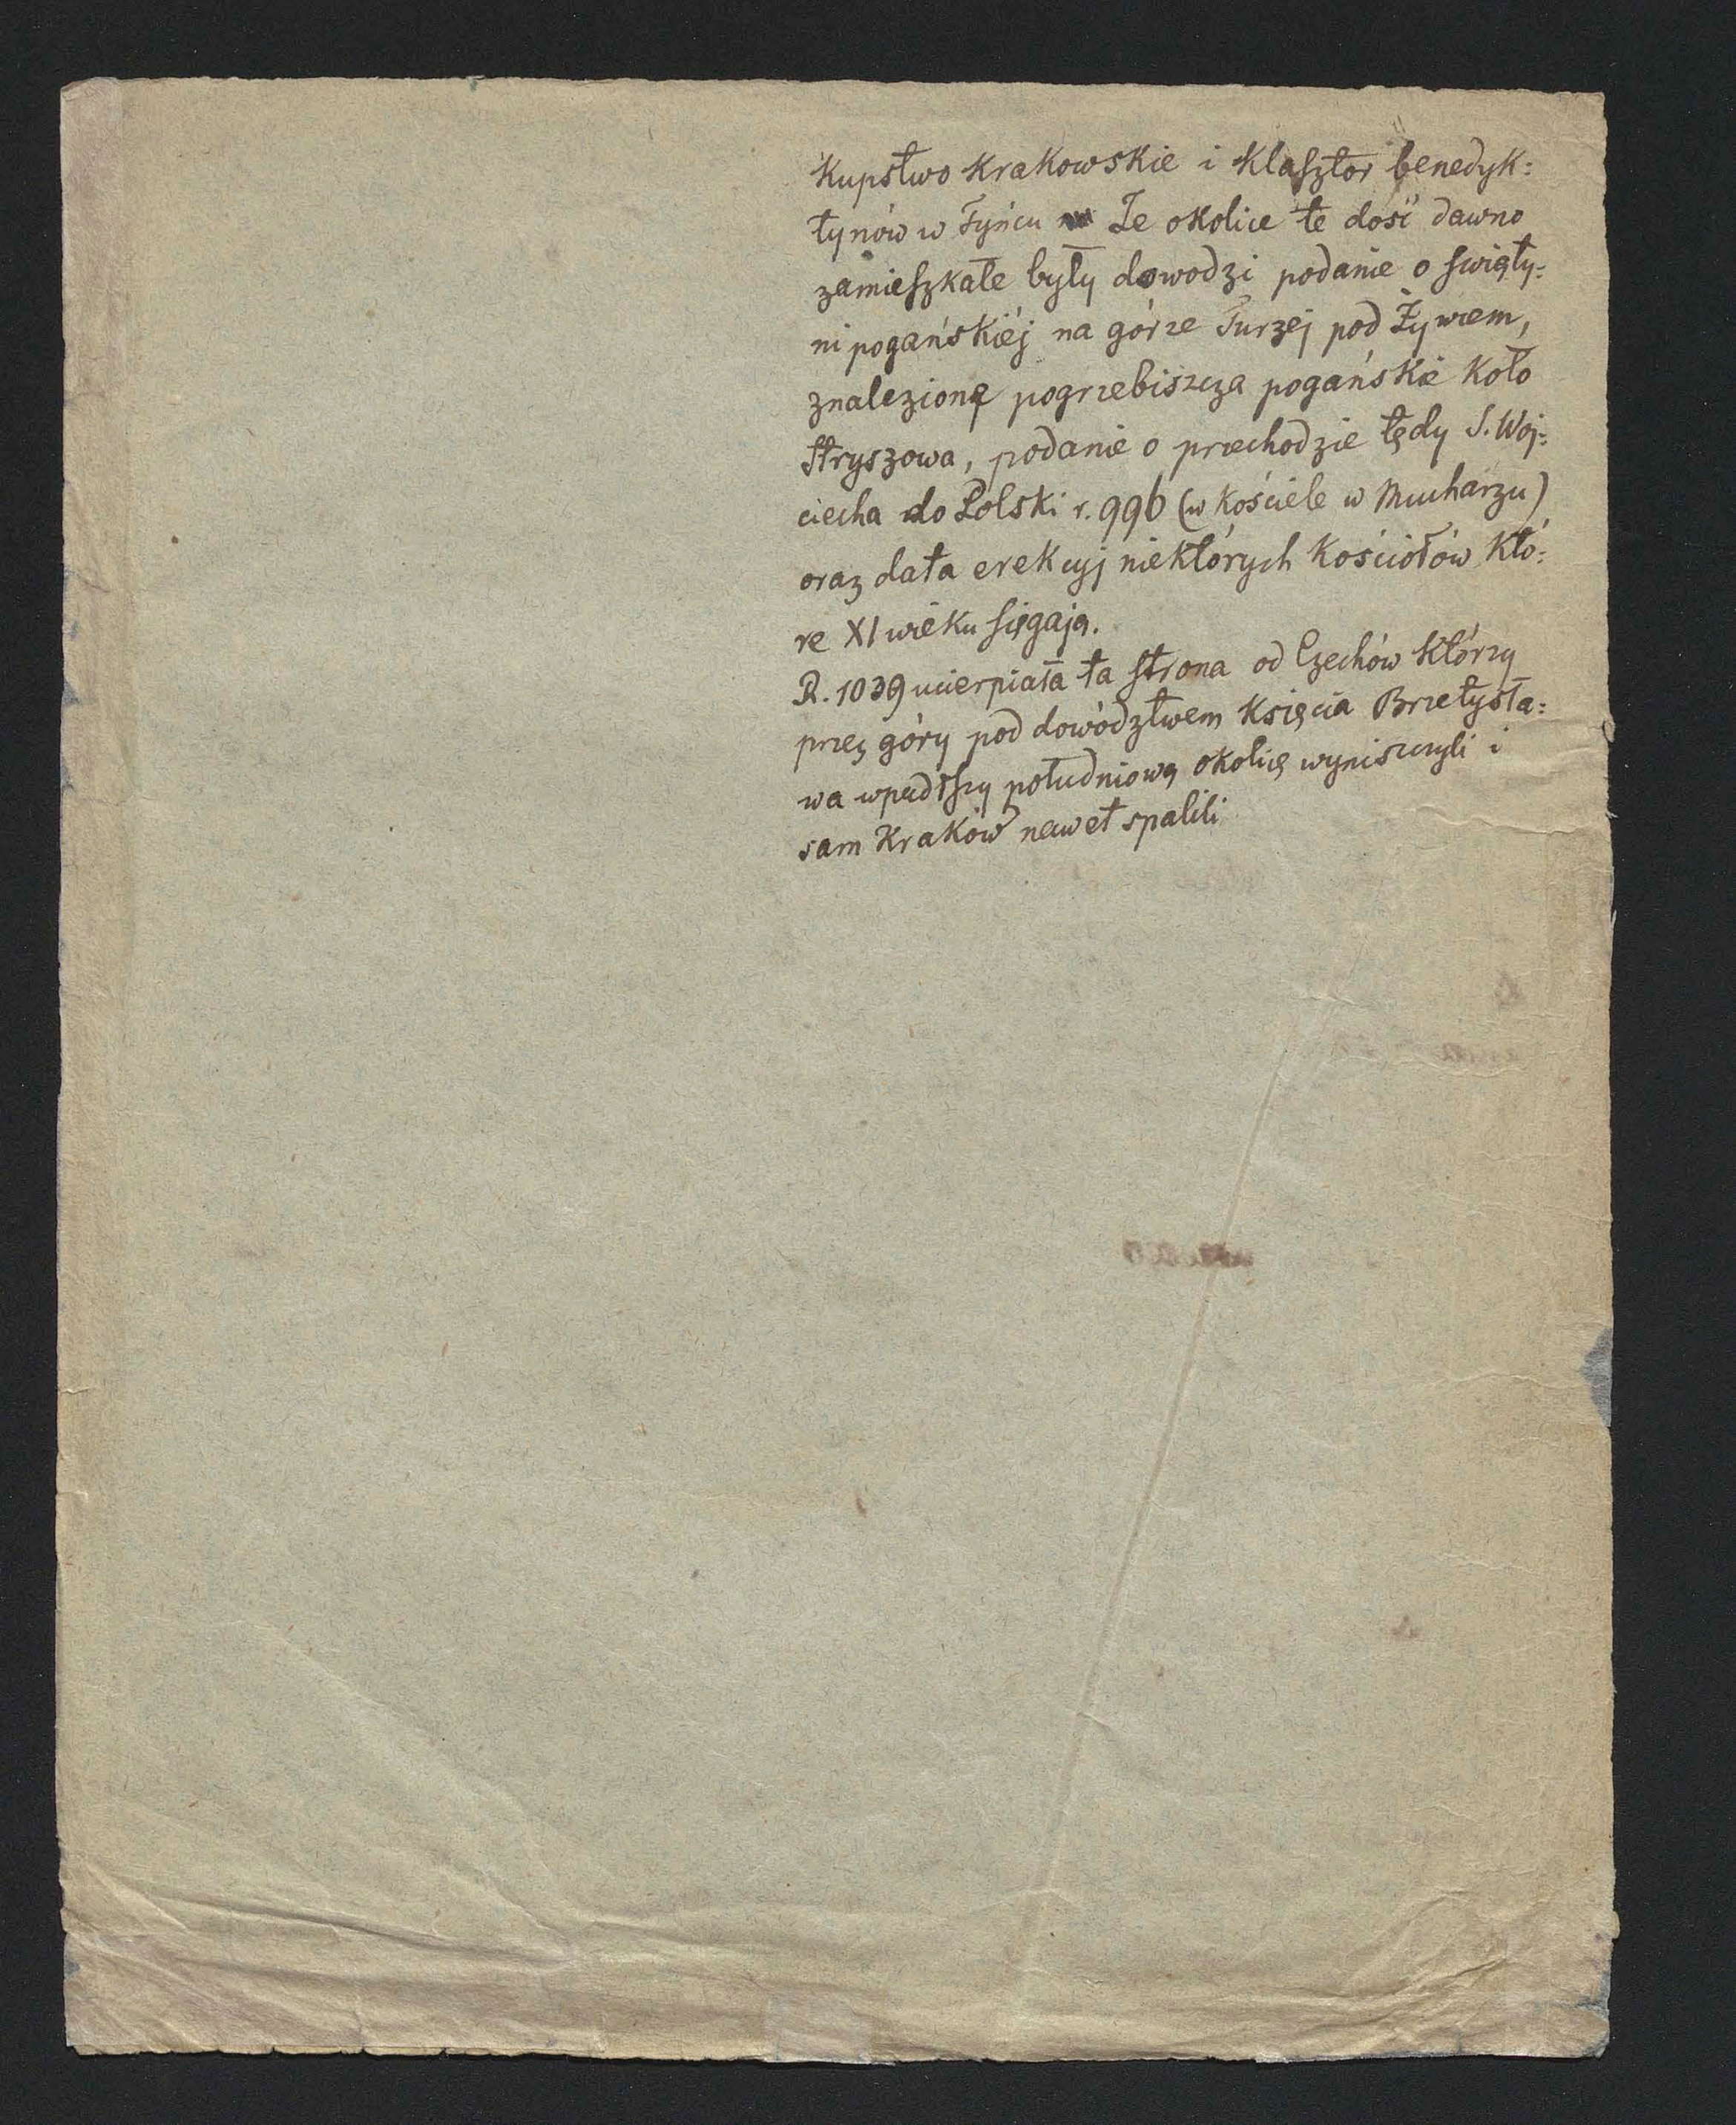 kupstwo krakowskie i klasztor benedyk=
tynów w Tyńcu Że okolice te dość dawno
zamieszkałe były dowodzi podanie o świąty=
ni pogańskiéj na górze Turzej pod Żywcem,
znalezioną pogrzebiszcza pogańskie koło
Stryszowa, podanie o przechodzie tędy S. Woj=
ciecha do Polski r. 996 (w kościele w Mucharzu)
oraz data erekcyj niektórych kościołów któ=
re XI wieku sięgają.
R. 1039 ucierpiała ta strona od Czechów którzy
przez góry pod dowództwem księcia Brzetysła=
wa wpadłszy południową okolicę wyniszczyli i
sam Kraków nawet spalili